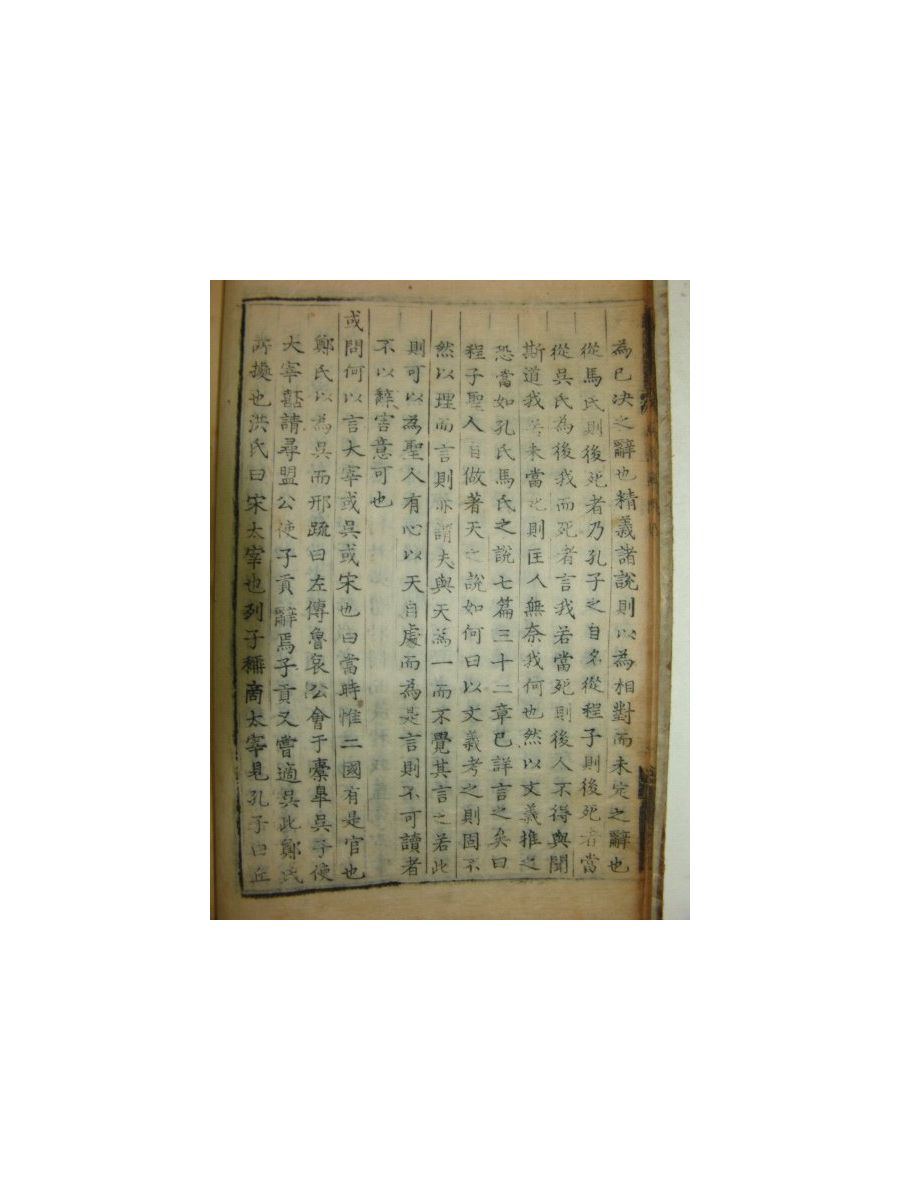 為已決之辭也精義諸說則以為相對而未定之辭也
從馬氏則後死者乃孔子之自名從程子則後死者當
從吳氏為後我而死者言我若當死則後人不得與聞
斯道我若未當死則匡人無奈我何也然以文義推之
恐當如孔氏馬氏之說七篇三十二章已詳言之矣曰
程子聖人自做著天之說如何曰以文義考之則固不
然以理而言則亦謂夫與天為一而不覺其言之若此
則可以為聖人有心以天自處而為是言則不可讀者
不以辭害意可也
或問何以言大宰或吳或宋也曰當時惟二國有是官也
鄭氏以為吳而邢疏曰左傳魯哀公會于橐皐吳子使
大宰嚭請尋盟公使子貢辭焉子貢又嘗適吳此鄭氏
所據也洪氏曰宋太宰也列子稱商太宰見孔子曰丘